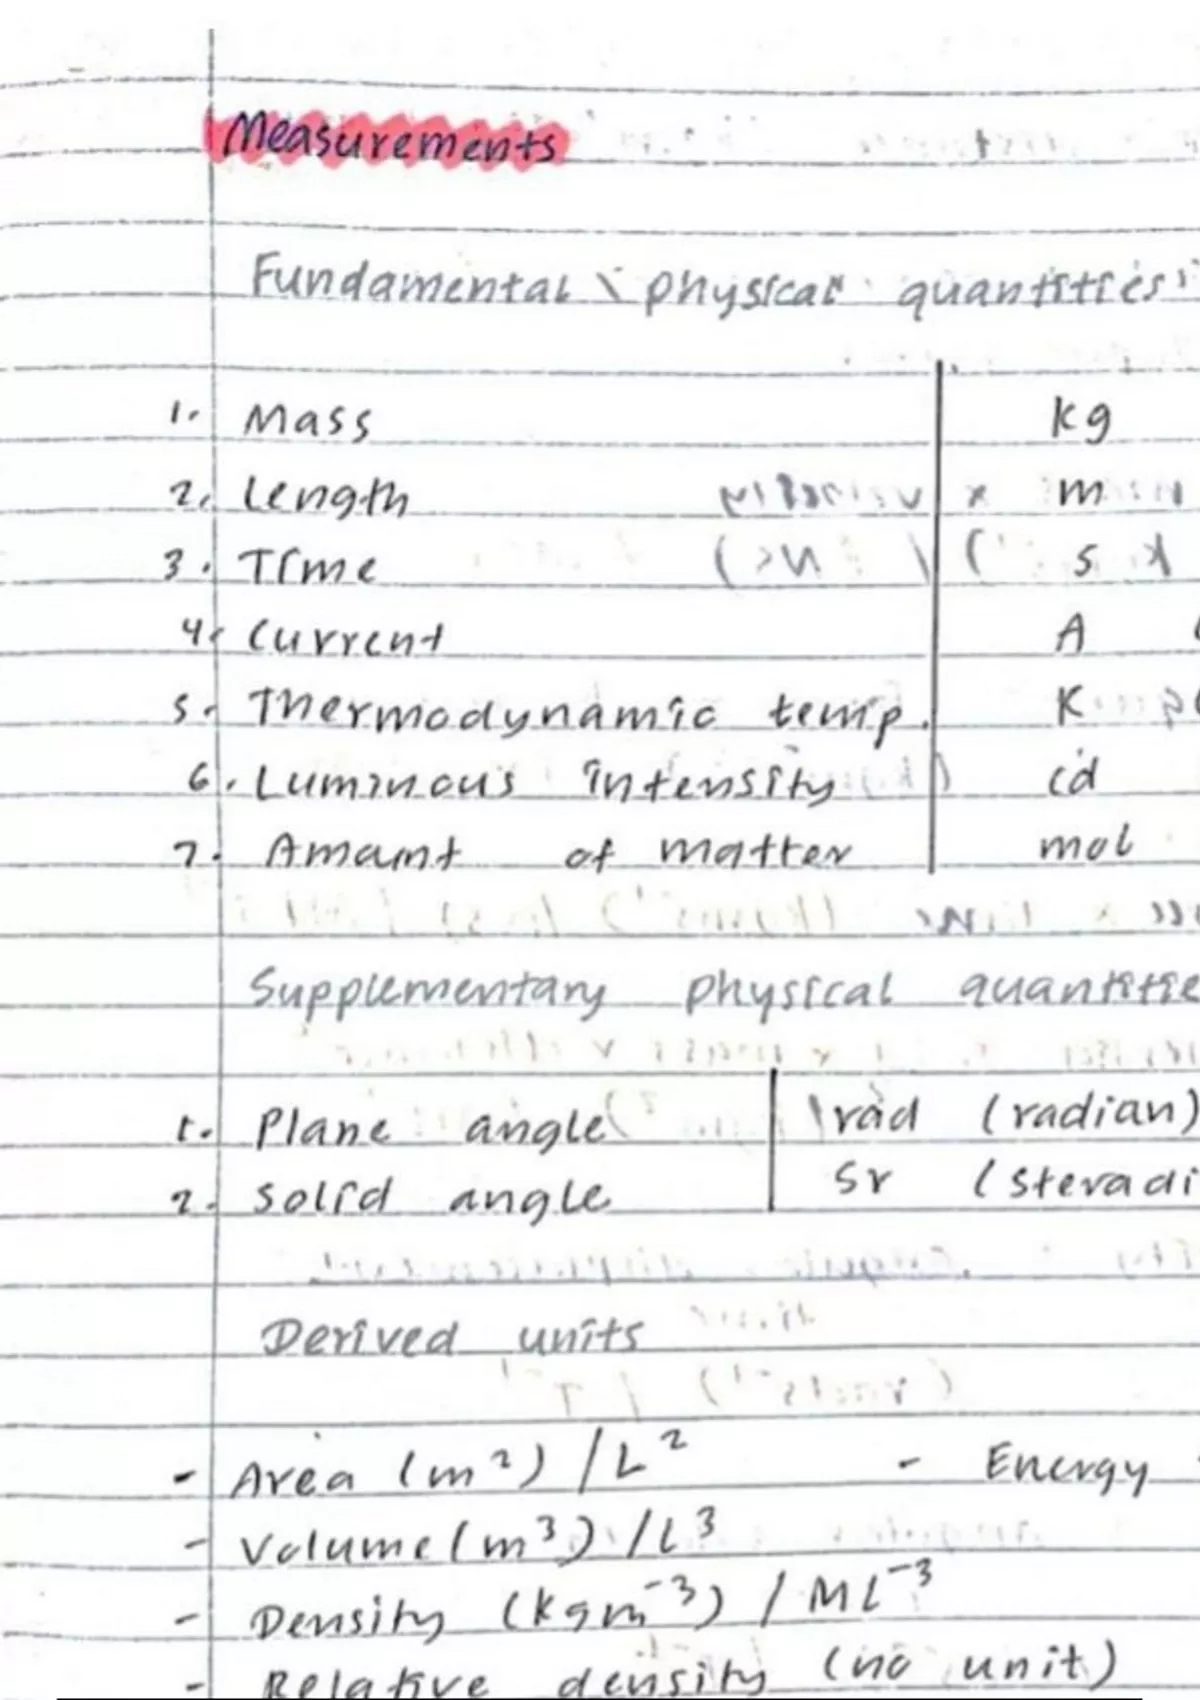 Measurements
Fundamental physical quantities
1. Mass kg
2. Length m
3. Time s
4. Current A
5. Thermodynamic temp. K
6. Luminous intensity cd
7. Amount of matter mol
Supplementary physical quantitie
1. Plane angle rad (radian)
2. Solid angle Sr (steradi
Derived units
- Area (m²) / L² - Energy
- Volume (m³) / L³
- Density (kgm⁻³) / ML⁻³
- Relative density (no unit)